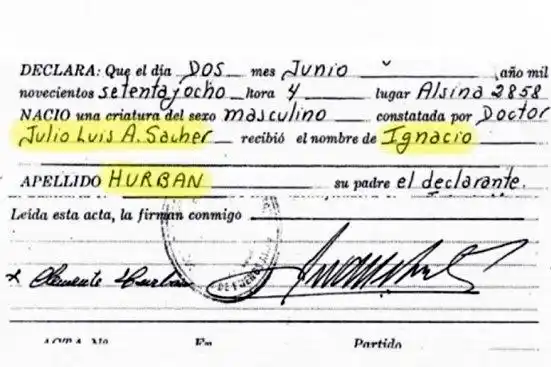 DECLARA: Que el día DOS mes Junio , año mil
novecientos setentaiocho hora 4 lugar Alsina 2858
NACIO una criatura del sexo masculino constatada por Doctor
Julio Luis A. Sacher recibió el nombre de Ignacio
APELLIDO HURBAN su padre el declarante.
Leída esta acta, la firman conmigo
x Clemente Hurban
ACTA Nº En Partido